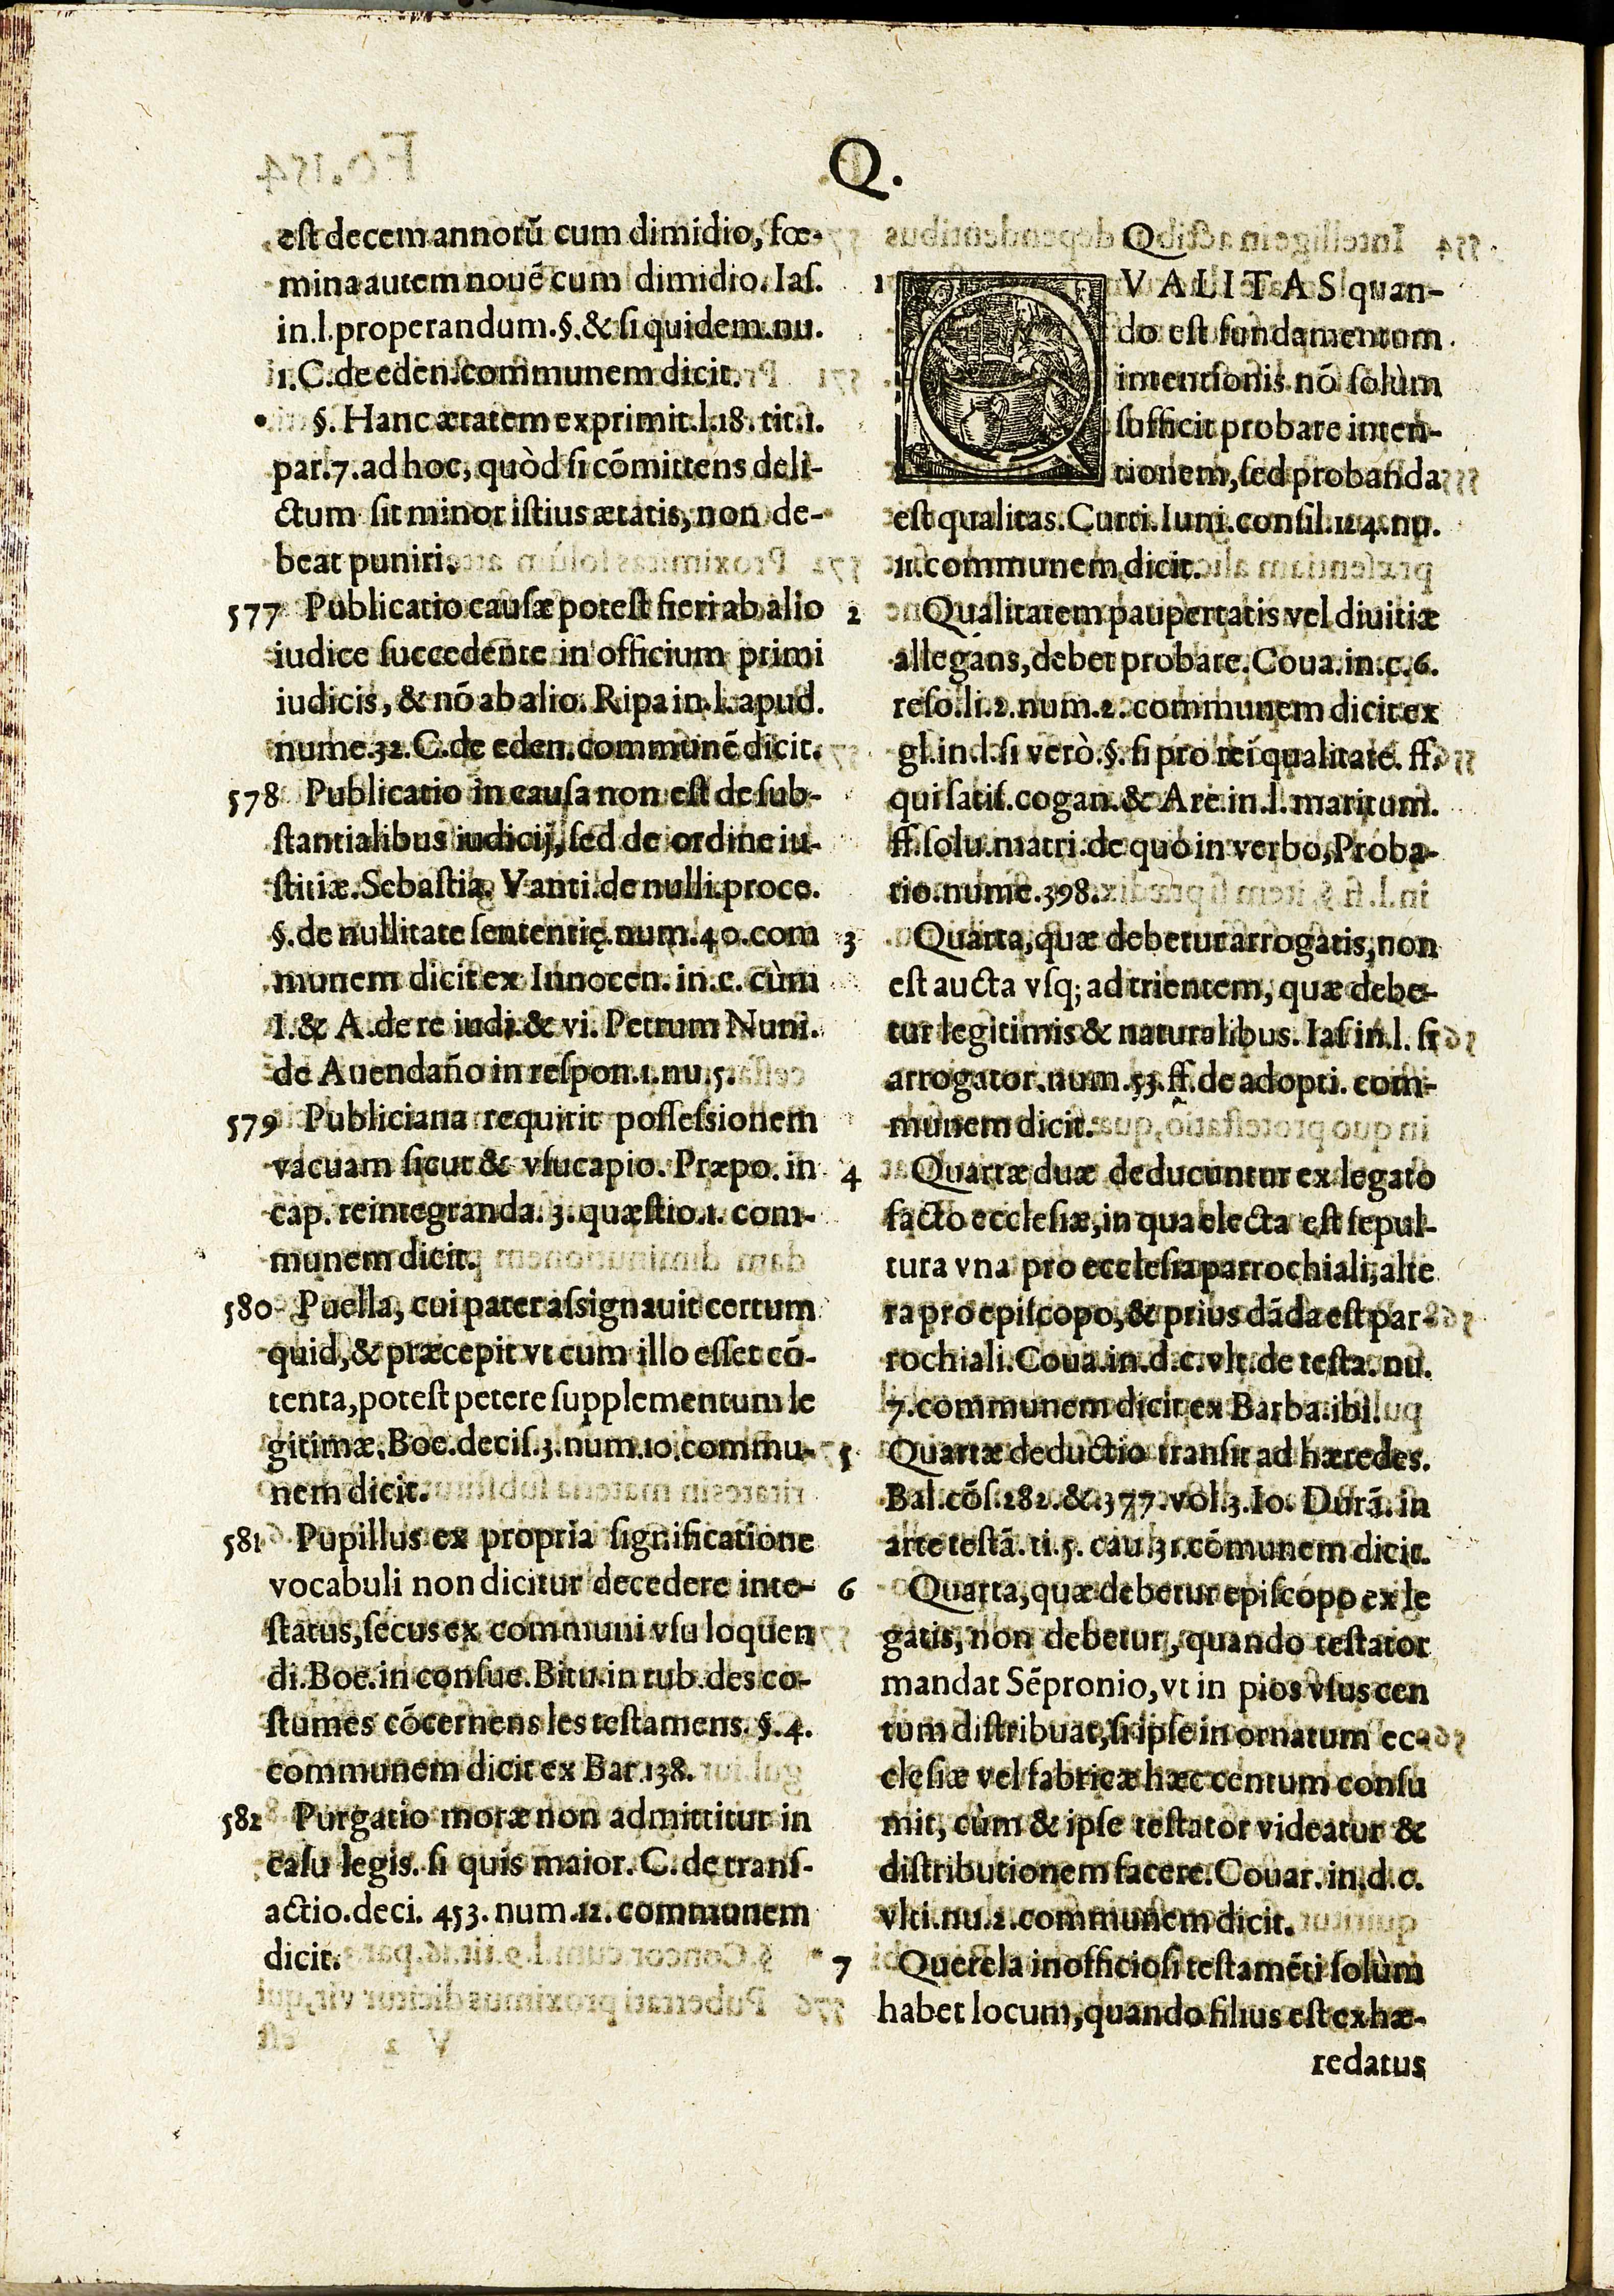 Q.
est decem annorũ cum dimidio, fœ-
mina autem nouẽ cum dimidio. Iaſ.
in.l.properandum.§.& ſi quidem.nu.
1.C.de eden.communem dicit.
§. Hanc ætatem exprimit.l.18.tit.1.
par.7.ad hoc, quòd ſi cõmittens deli-
ctum ſit minor iſtius ætatis, non de-
beat puniri.
577 Publicatio cauſæ poteſt fieri ab alio
iudice ſuccedente in officium primi
iudicis, & nõ ab alio. Ripa in.l.apud.
nume.32.C.de eden.communẽ dicit.
578 Publicatio in cauſa non eſt de ſub-
ſtantialibus iudicij, ſed de ordine iu-
ſtitiæ. Sebaſtia. Vanti.de nulli.proce.
§.de nullitate ſententię.num.40.com
munem dicit ex Innocen. in.c. cùm
I.& A.de re iudi.& vi. Petrum Nuni.
de Auendaño in reſpon.1.nu.5.
579 Publiciana requirit poſſeſsionem
vacuam ſicut & vſucapio. Præpo. in
cap. reintegranda. 3. quæſtio.1. com-
munem dicit.
580 Puella, cui pater aſsignauit certum
quid, & præcepit vt cum illo eſſet cõ-
tenta, poteſt petere ſupplementum le
gitimæ. Boe.deciſ.3.num.10.commu-
nem dicit.
581 Pupillus ex propria ſignificatione
vocabuli non dicitur decedere inte-
ſtatus, ſecus ex communi vſu loquen
di.Boe.in conſue.Bitu.in rub.des co-
ſtumes cõcernens les teſtamens. §.4.
communem dicit ex Bar.138.
582 Purgatio moræ non admittitur in
caſu legis. ſi quis maior. C. de tranſ-
actio.deci. 453. num.12. communem
dicit.
Q
1 QVALITAS quan-
do eſt fundamentum
intentionis nõ ſolùm
ſufficit probare inten-
tionem, ſed probanda
eſt qualitas.Curti.Iuni.conſil.114.nu.
11.communem dicit.
2 Qualitatem paupertatis vel diuitiæ
allegans, debet probare. Coua.in.c.6.
reſo.li.2.num.2. communem dicit ex
gl.in.l.ſi verò.§.ſi pro rei qualitate.ff.
qui ſatiſ.cogan.& Are.in.l.maritum.
ff.ſolu.matri.de quo in verbo, Proba-
tio.nume.398.
3 Quarta, quæ debetur arrogatis, non
eſt aucta vſq; ad trientem, quæ debe-
tur legitimis & naturalibus. Iaſ in.l. ſi
arrogator.num.53.ff.de adopti. com-
munem dicit.
4 Quartæ duæ deducuntur ex legato
facto eccleſiæ, in qua electa eſt ſepul-
tura vna pro eccleſia parrochiali, alte
ra pro epiſcopo, & prius dãda eſt par-
rochiali.Coua.in.d.c.vlt.de teſta.nu.
7.communem dicit ex Barba.ibi.
5 Quartæ deductio tranſit ad hæredes.
Bal.cõſ.282.& 377.vol.3.Io. Durã. in
arte teſtã. ti.5. cau.31.cõmunem dicit.
6 Quarta, quæ debetur epiſcopo ex le
gatis, non debetur, quando teſtator
mandat Sẽpronio, vt in pios vſus cen
tum diſtribuat, ſi ipſe in ornatum ec-
cleſiæ vel fabricæ hæc centum conſu
mit, cùm & ipſe teſtator videatur &
diſtributionem facere. Couar. in.d.c.
vlti.nu.2.communem dicit.
7 Querela inofficioſi teſtamẽti ſolùm
habet locum, quando filius eſt exhæ-
redatus